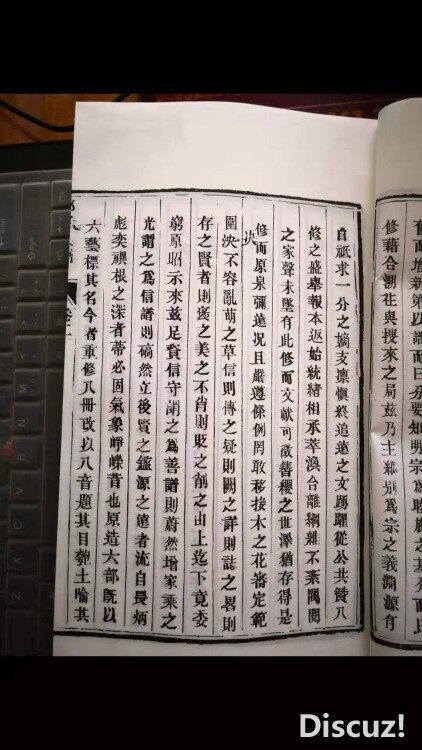 修藉合溯往與授來之局茲乃主繇別為宗之義淵源有
自祇求一分之嫡支凛慎終追遠之文踴躍從公共贊八
修之盛舉報本返始統緒相承萃渙台離綱維不紊閥閱
之家聲未墜有此修而文獻可徵簪纓之世澤猶存得是
修而原泉彌遠况且嚴遵條例罔敢移接木之花審定範
决
圍泱不容亂萌之草信則傳之疑則闕之詳則誌之畧則
存之賢者則褒之美之不肖則貶之削之由上迄下竟委
窮原昭示來茲足資信守謂之為善譜則蔚然增家乘之
光謂之為信譜則碻然立後賢之鑑源之遠者流自長炳
彪奕禩根之深者蒂必固氣象崢嶸昔也原造大部旣以
六藝標其名今者重修八冊改以八音題其目匏土喻其
Discuz!